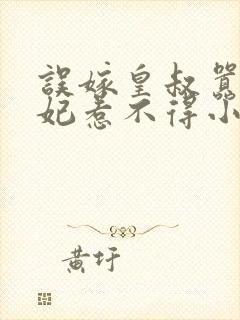 誤嫁皇叔
妃惹不得小
黃圩